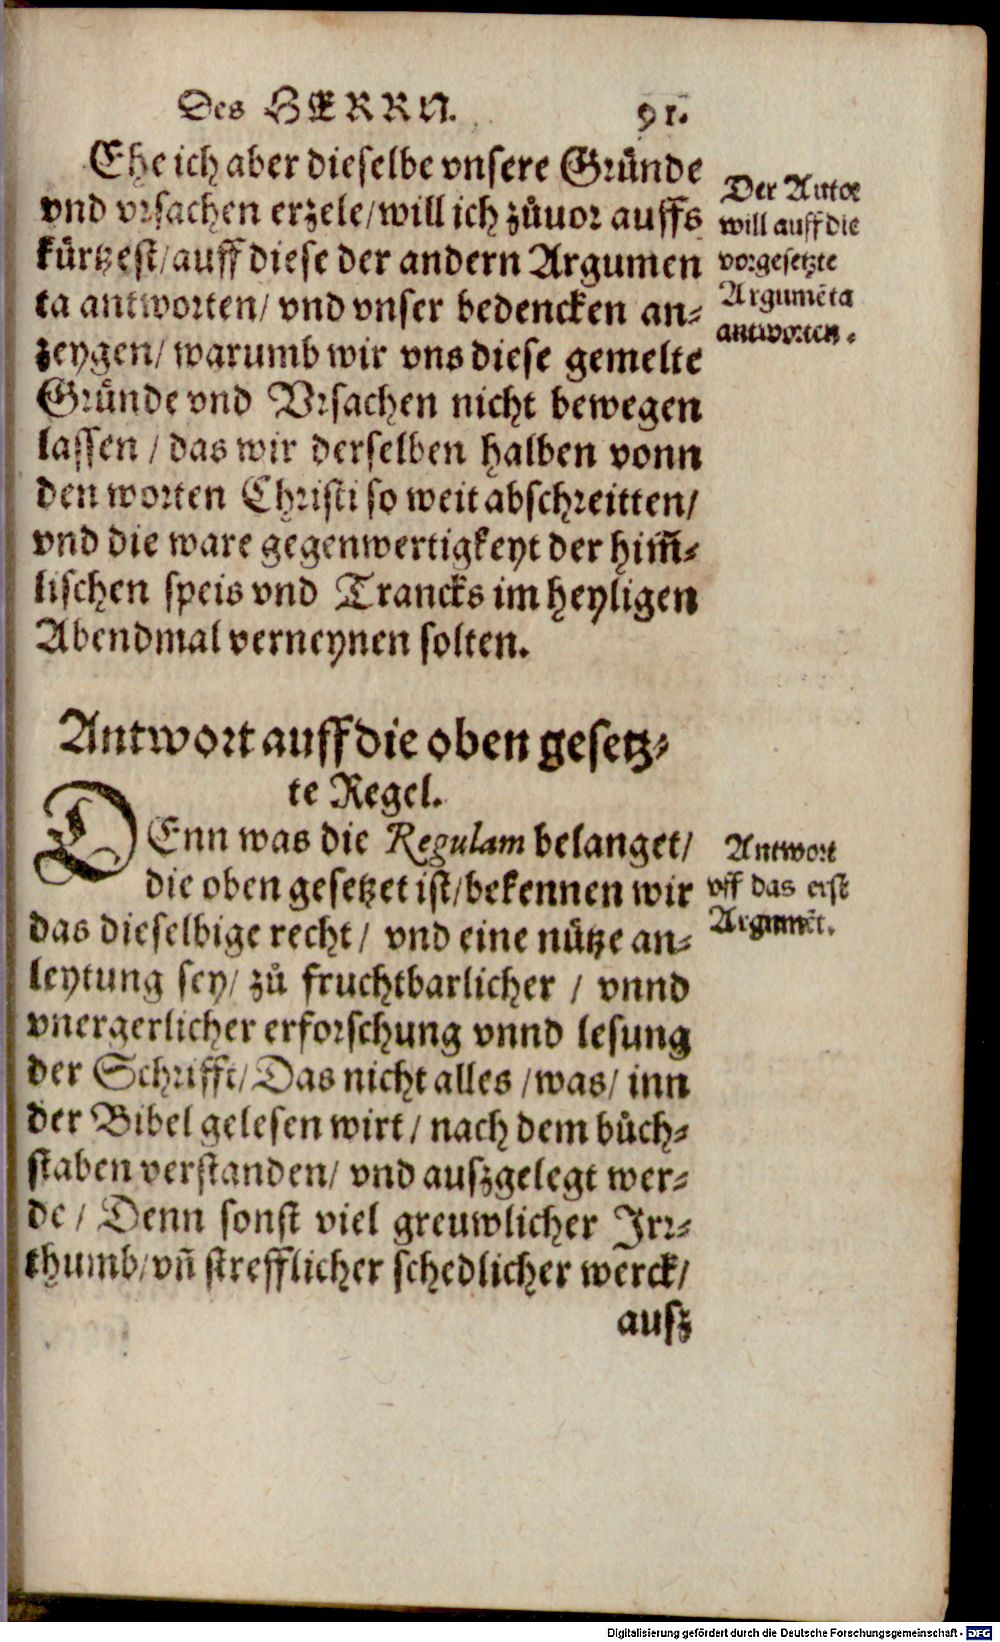 Des HERRN. 91.
Ehe ich aber dieselbe vnsere Gründe
vnd vrsachen erzele/will ich zůuor auffs
kürtzest/auff diese der andern Argumen
ta antworten/ vnd vnser bedencken an-
zeygen/ warumb wir vns diese gemelte
Gründe vnd Vrsachen nicht bewegen
lassen / das wir derselben halben vonn
den worten Christi so weit abschreitten/
vnd die ware gegenwertigkeyt der him̃-
lischen speis vnd Trancks im heyligen
Abendmal verneynen solten.
Der Autor
will auff die
vorgesetzte
Argumẽta
antworten.
Antwort auff die oben gesetz-
te Regel.
DEnn was die Regulam belanget/
die oben gesetzet ist/bekennen wir
das dieselbige recht/ vnd eine nütze an-
leytung sey/ zů fruchtbarlicher / vnnd
vnergerlicher erforschung vnnd lesung
der Schrifft/Das nicht alles /was/ inn
der Bibel gelesen wirt/ nach dem bůch-
staben verstanden/ vnd auszgelegt wer-
de/ Denn sonst viel greuwlicher Irr-
thumb/vñ strefflicher schedlicher werck/
ausz
Antwort
vff das erst
Argumẽt.
Digitalisierung gefördert durch die Deutsche Forschungsgemeinschaft - DFG